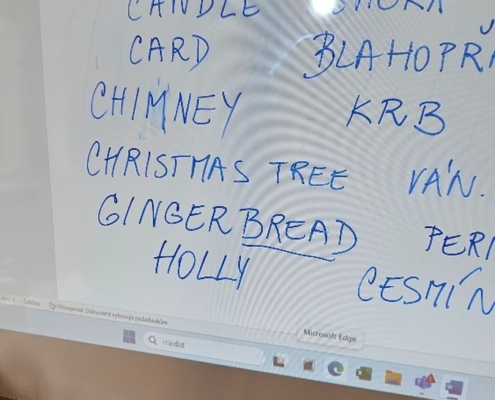 CANDLE
CARD BLAHOPŘ
CHIMNEY KRB
CHRISTMAS TREE VÁN.
GINGERBREAD PERN
HOLLY CESMÍN
Microsoft Edge
Hledat